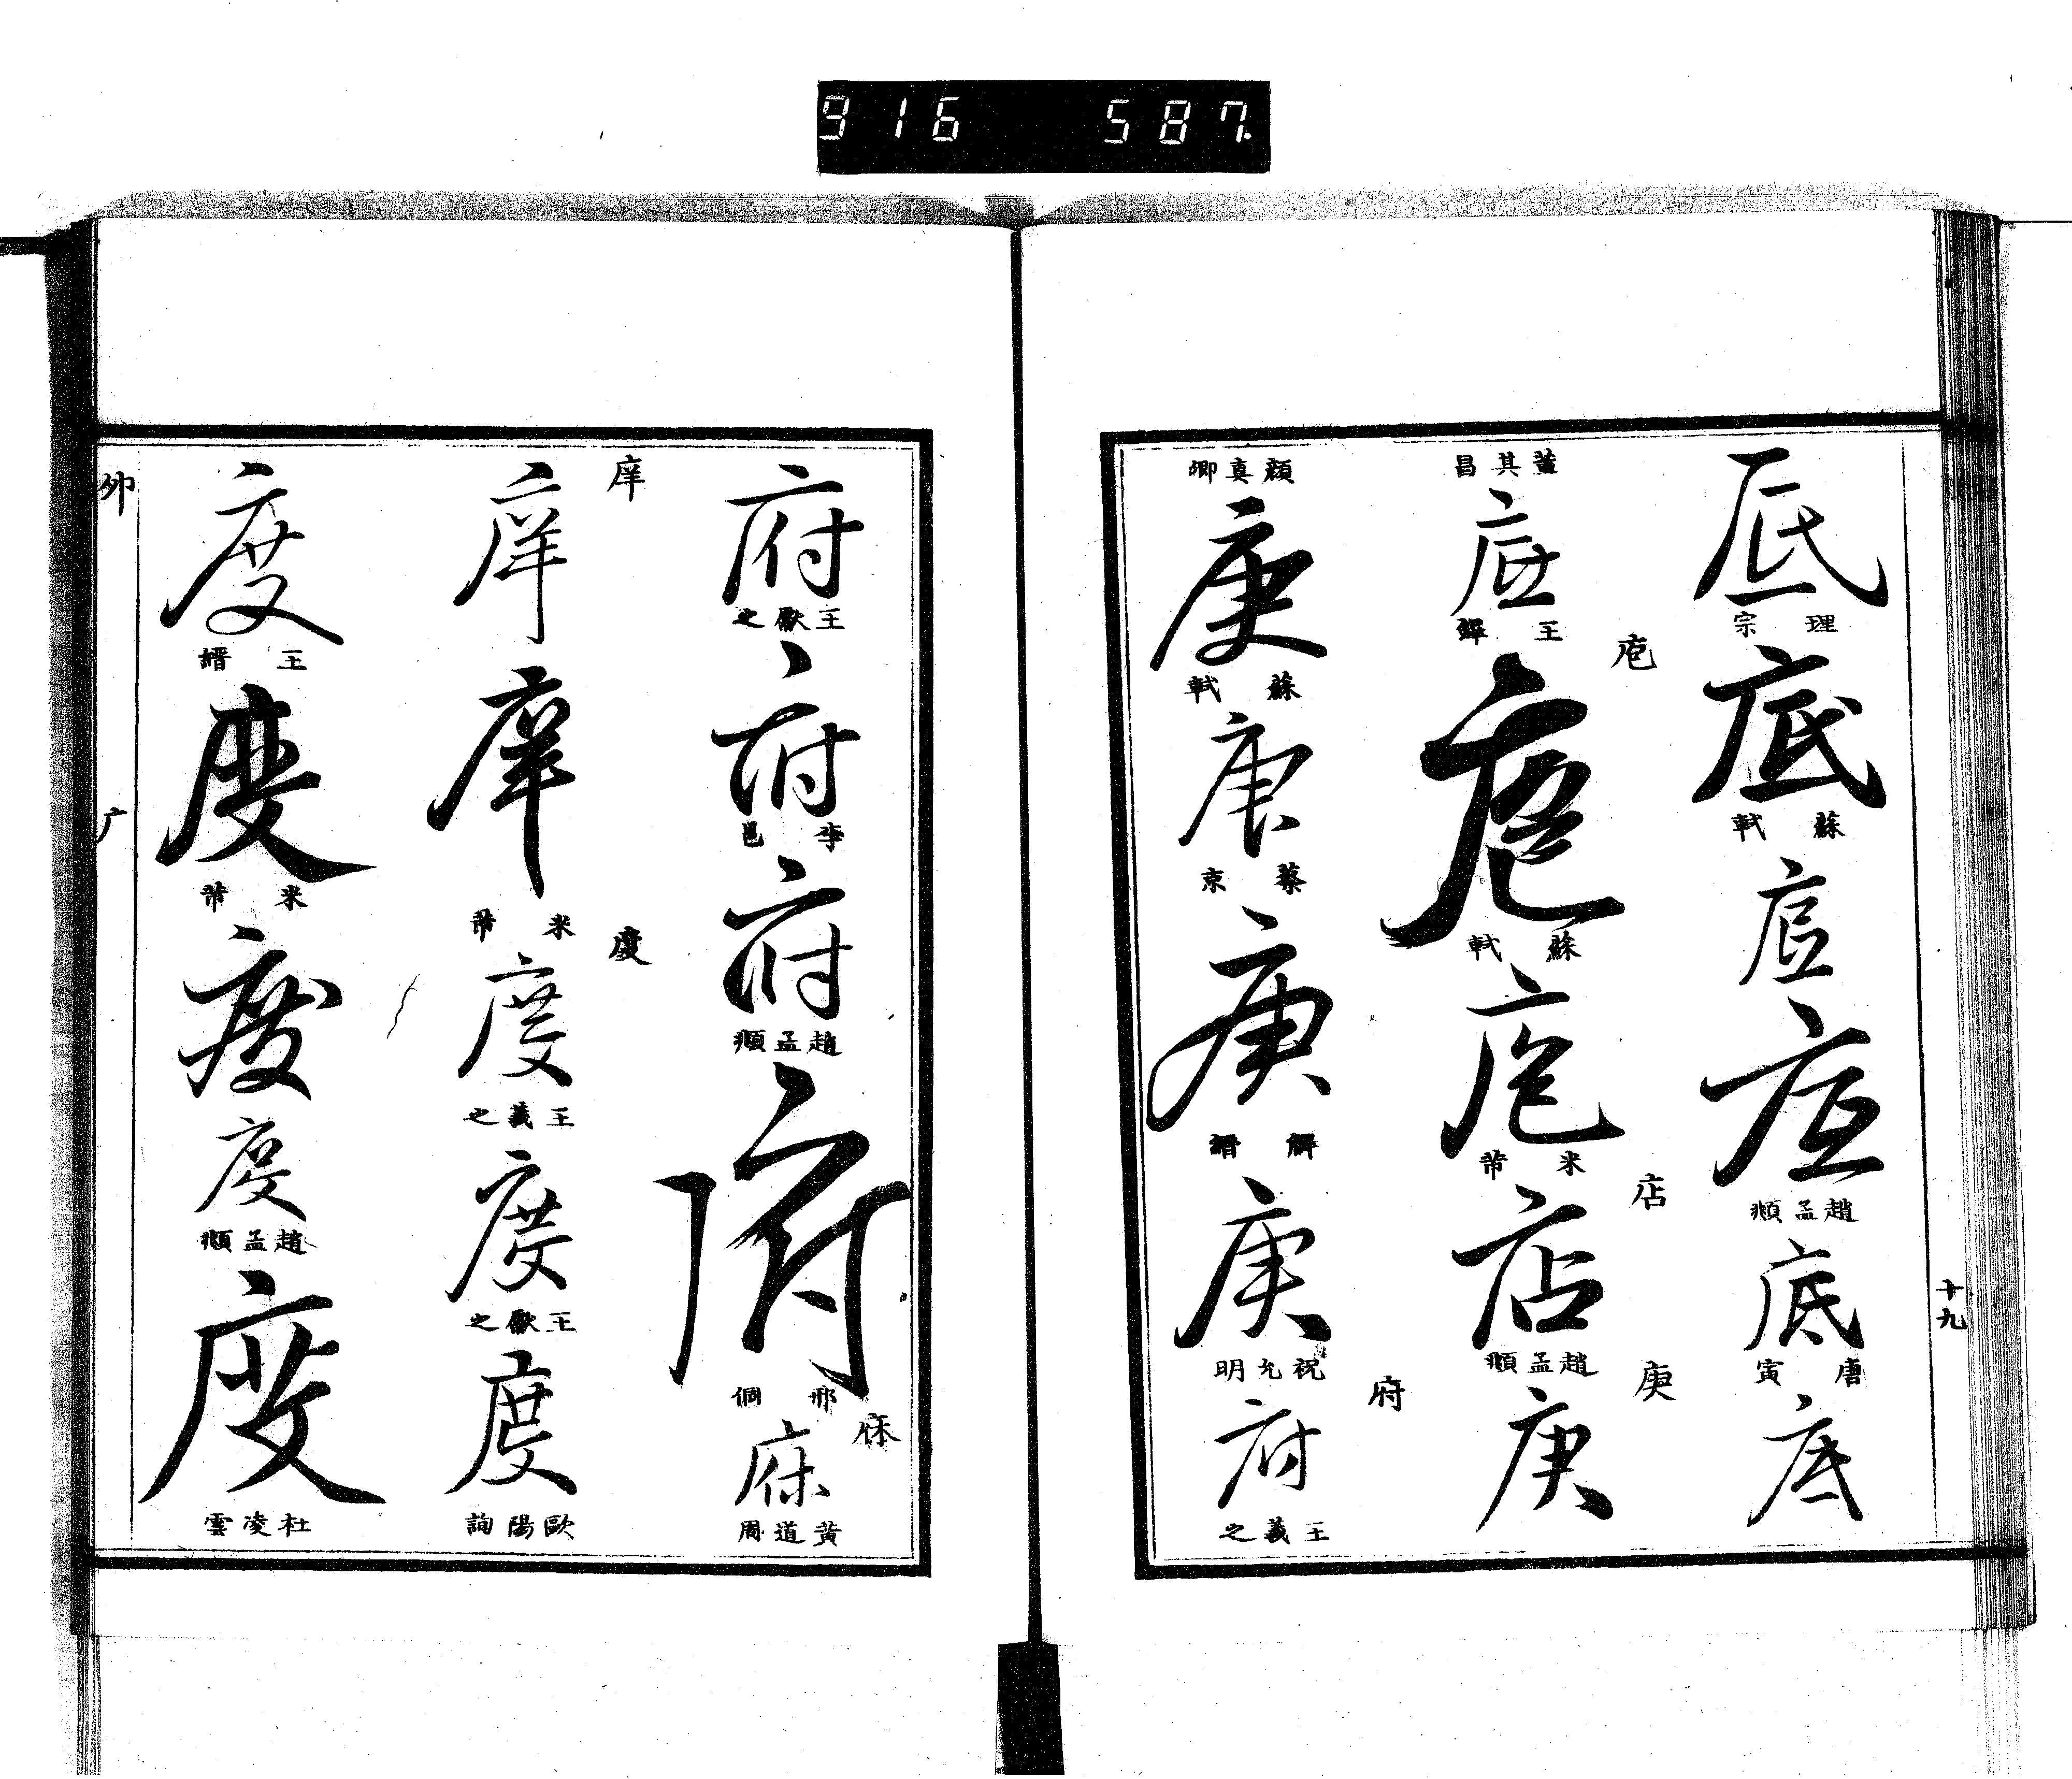 916 587.
十九
底
理宗
底
蘇軾
底
底
趙孟頫
底
唐寅
底
董其昌
底
王鐸
庖
庖
蘇軾
庖
米芾
店
店
趙孟頫
庚
庚
顏真卿
庚
蘇軾
庚
蔡京
庚
解縉
庚
祝允明
府
府
王羲之
府
王獻之
府
李邕
府
趙孟頫
府
邢侗
庥
庥
黃道周
庠
庠
庠
米芾
度
度
王羲之
度
王獻之
度
歐陽詢
度
王縉
度
米芾
度
度
趙孟頫
度
杜凌雲
卯
广